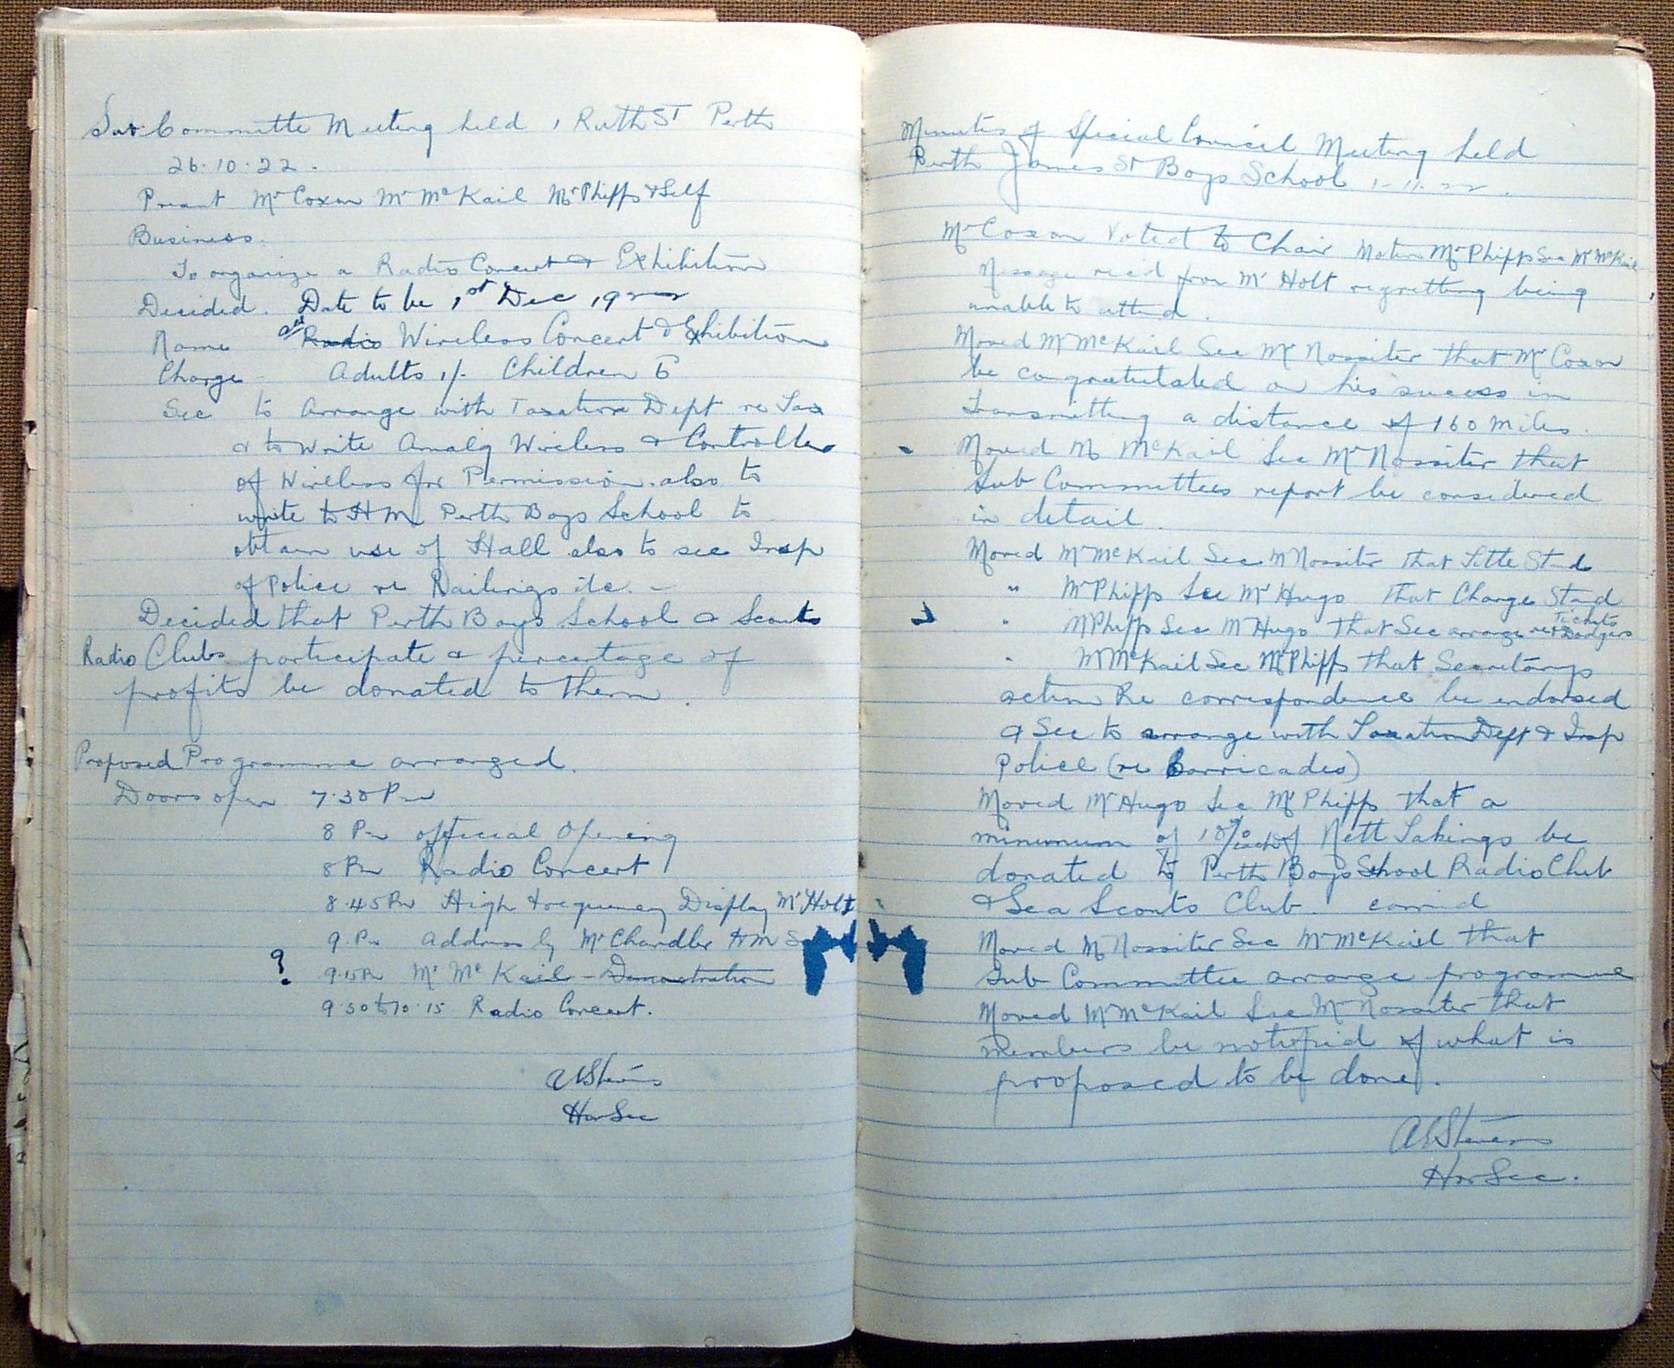 Sub Committe Meeting held 1 Ruth St Perth
26.10.22.
Present Mr Coxon Mr McKail Mr Phipps & Self
Business.
To organize a Radio Concert & Exhibition
Decided. Date to be 1st Dec 1922
Name Radio Wireless Concert & Exhibition
Charge Adults 1/- Children 6
Sec to arrange with Taxation Dept re Tax
& to write Amalg Wireless & Controller
of Wireless for Permission. also to
write to H M Perth Boys School to
obtain use of Hall also to see Insp
of Police re Railings etc. -
Decided that Perth Boys School & Scouts
Radio Clubs participate & percentage of
profits be donated to them.
Proposed Programme arranged.
Doors open 7.30 Pm
8 Pm official Opening
8 Pm Radio Concert
8.45 Pm High frequency Display Mr Holt
9. Pm Address by Mr Chandler H M S
? 9.15 Pm Mr McKail - Demonstration
9.30 to 10.15 Radio Concert.
A E Stevens
Hon Sec
Minutes of Special Council Meeting held
Perth James St Boys School 1-11-22.
Mr Coxon Voted to Chair Motion Mr Phipps Sec Mr McKail
Message rec'd from Mr Holt regretting being
unable to attend.
Moved Mr McKail Sec Mr Rossiter that Mr Coxon
be congratulated on his sucess in
Transmitting a distance of 160 miles.
Moved Mr McKail Sec Mr Rossiter that
Sub Committees report be considered
in detail.
Moved Mr McKail Sec Mr Rossiter that Title Stand
" Mr Phipps Sec Mr Hugo that Charge Stand
" Mr Phipps Sec Mr Hugo that Sec arrange re Tickets & Dodgers
" Mr McKail Sec Mr Phipps that Secretarys
action Re correspondence be endorsed
& Sec to arrange with Taxation Dept & Insp
Police (re Barricades)
Moved Mr Hugo Sec Mr Phipps that a
minimum of 10% each of Nett Takings be
donated to Perth Boys School Radio Club
& Sea Scouts Club. carried
Moved Mr Rossiter Sec Mr McKail that
Sub Committee arrange programme
Moved Mr McKail Sec Mr Rossiter that
members be notified of what is
proposed to be done.
A E Stevens
Hon Sec.